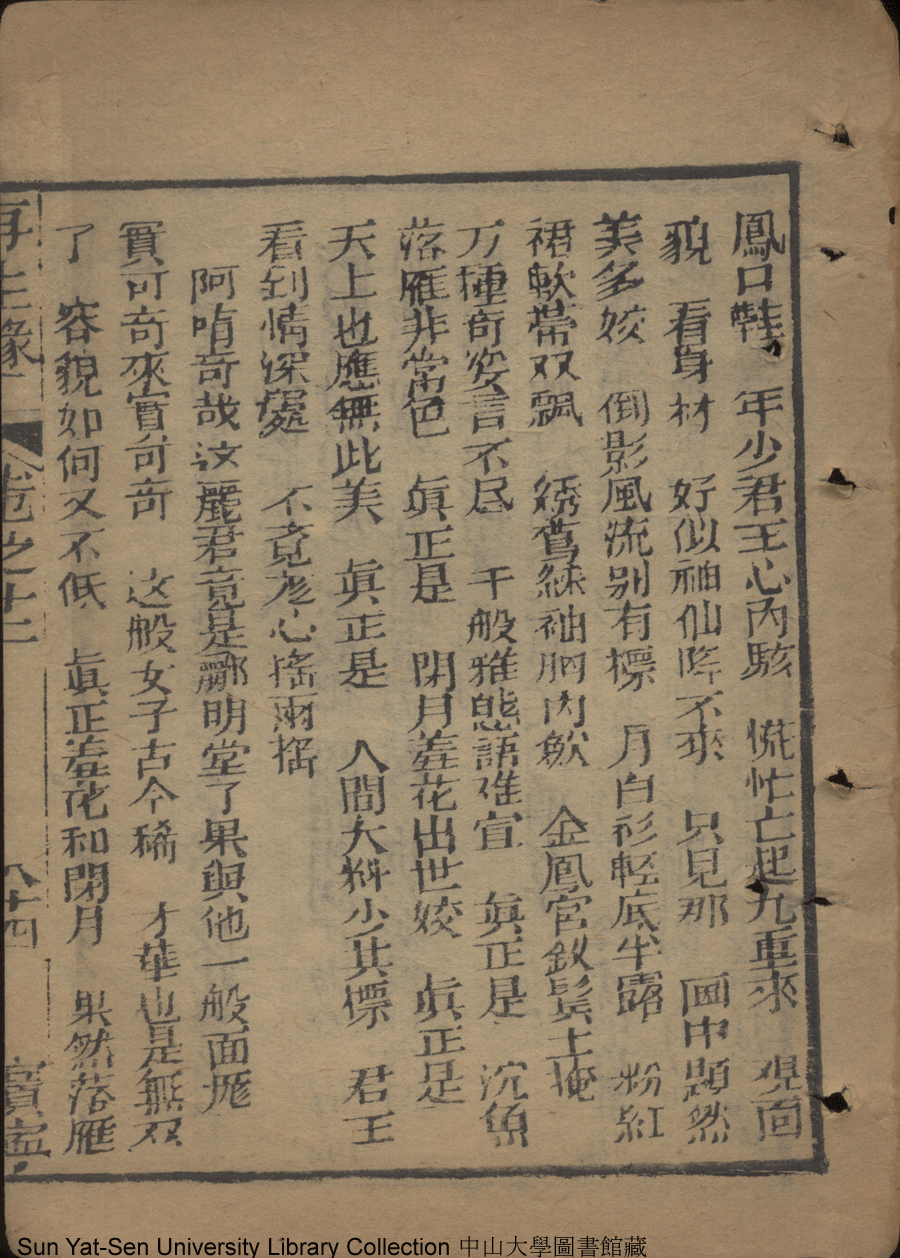 鳳口鞋 年少君王心內駭 慌忙亡起九重來 观面
貌 看身材 好似神仙降不來 只見那 画中題然
美多姣 倒影風流别有標 月白衫輕底半露 粉紅
裙軟帶双飄 綉鸞綵袖胸內 金鳳宫釵鬓上掩
万種奇姿言不尽 千般雅態語难宣 眞正是 沉魚
落雁非常色 眞正是 閉月羞花出世姣 眞正是
天上也應無此美 眞正是 人間大料少其標 君王
看到情深處 不竟龙心搖兩搖
阿唷奇哉这麗君竟是酈明堂了果與他一般面庞
實可奇來實可奇 这般女子古今稀 才華也是無双
了 容貌如何又不低 眞正羞花和閉月 果然落雁
再生緣 卷之十二 八十四 寶寧
Sun Yat-Sen University Library Collection 中山大學圖書館藏